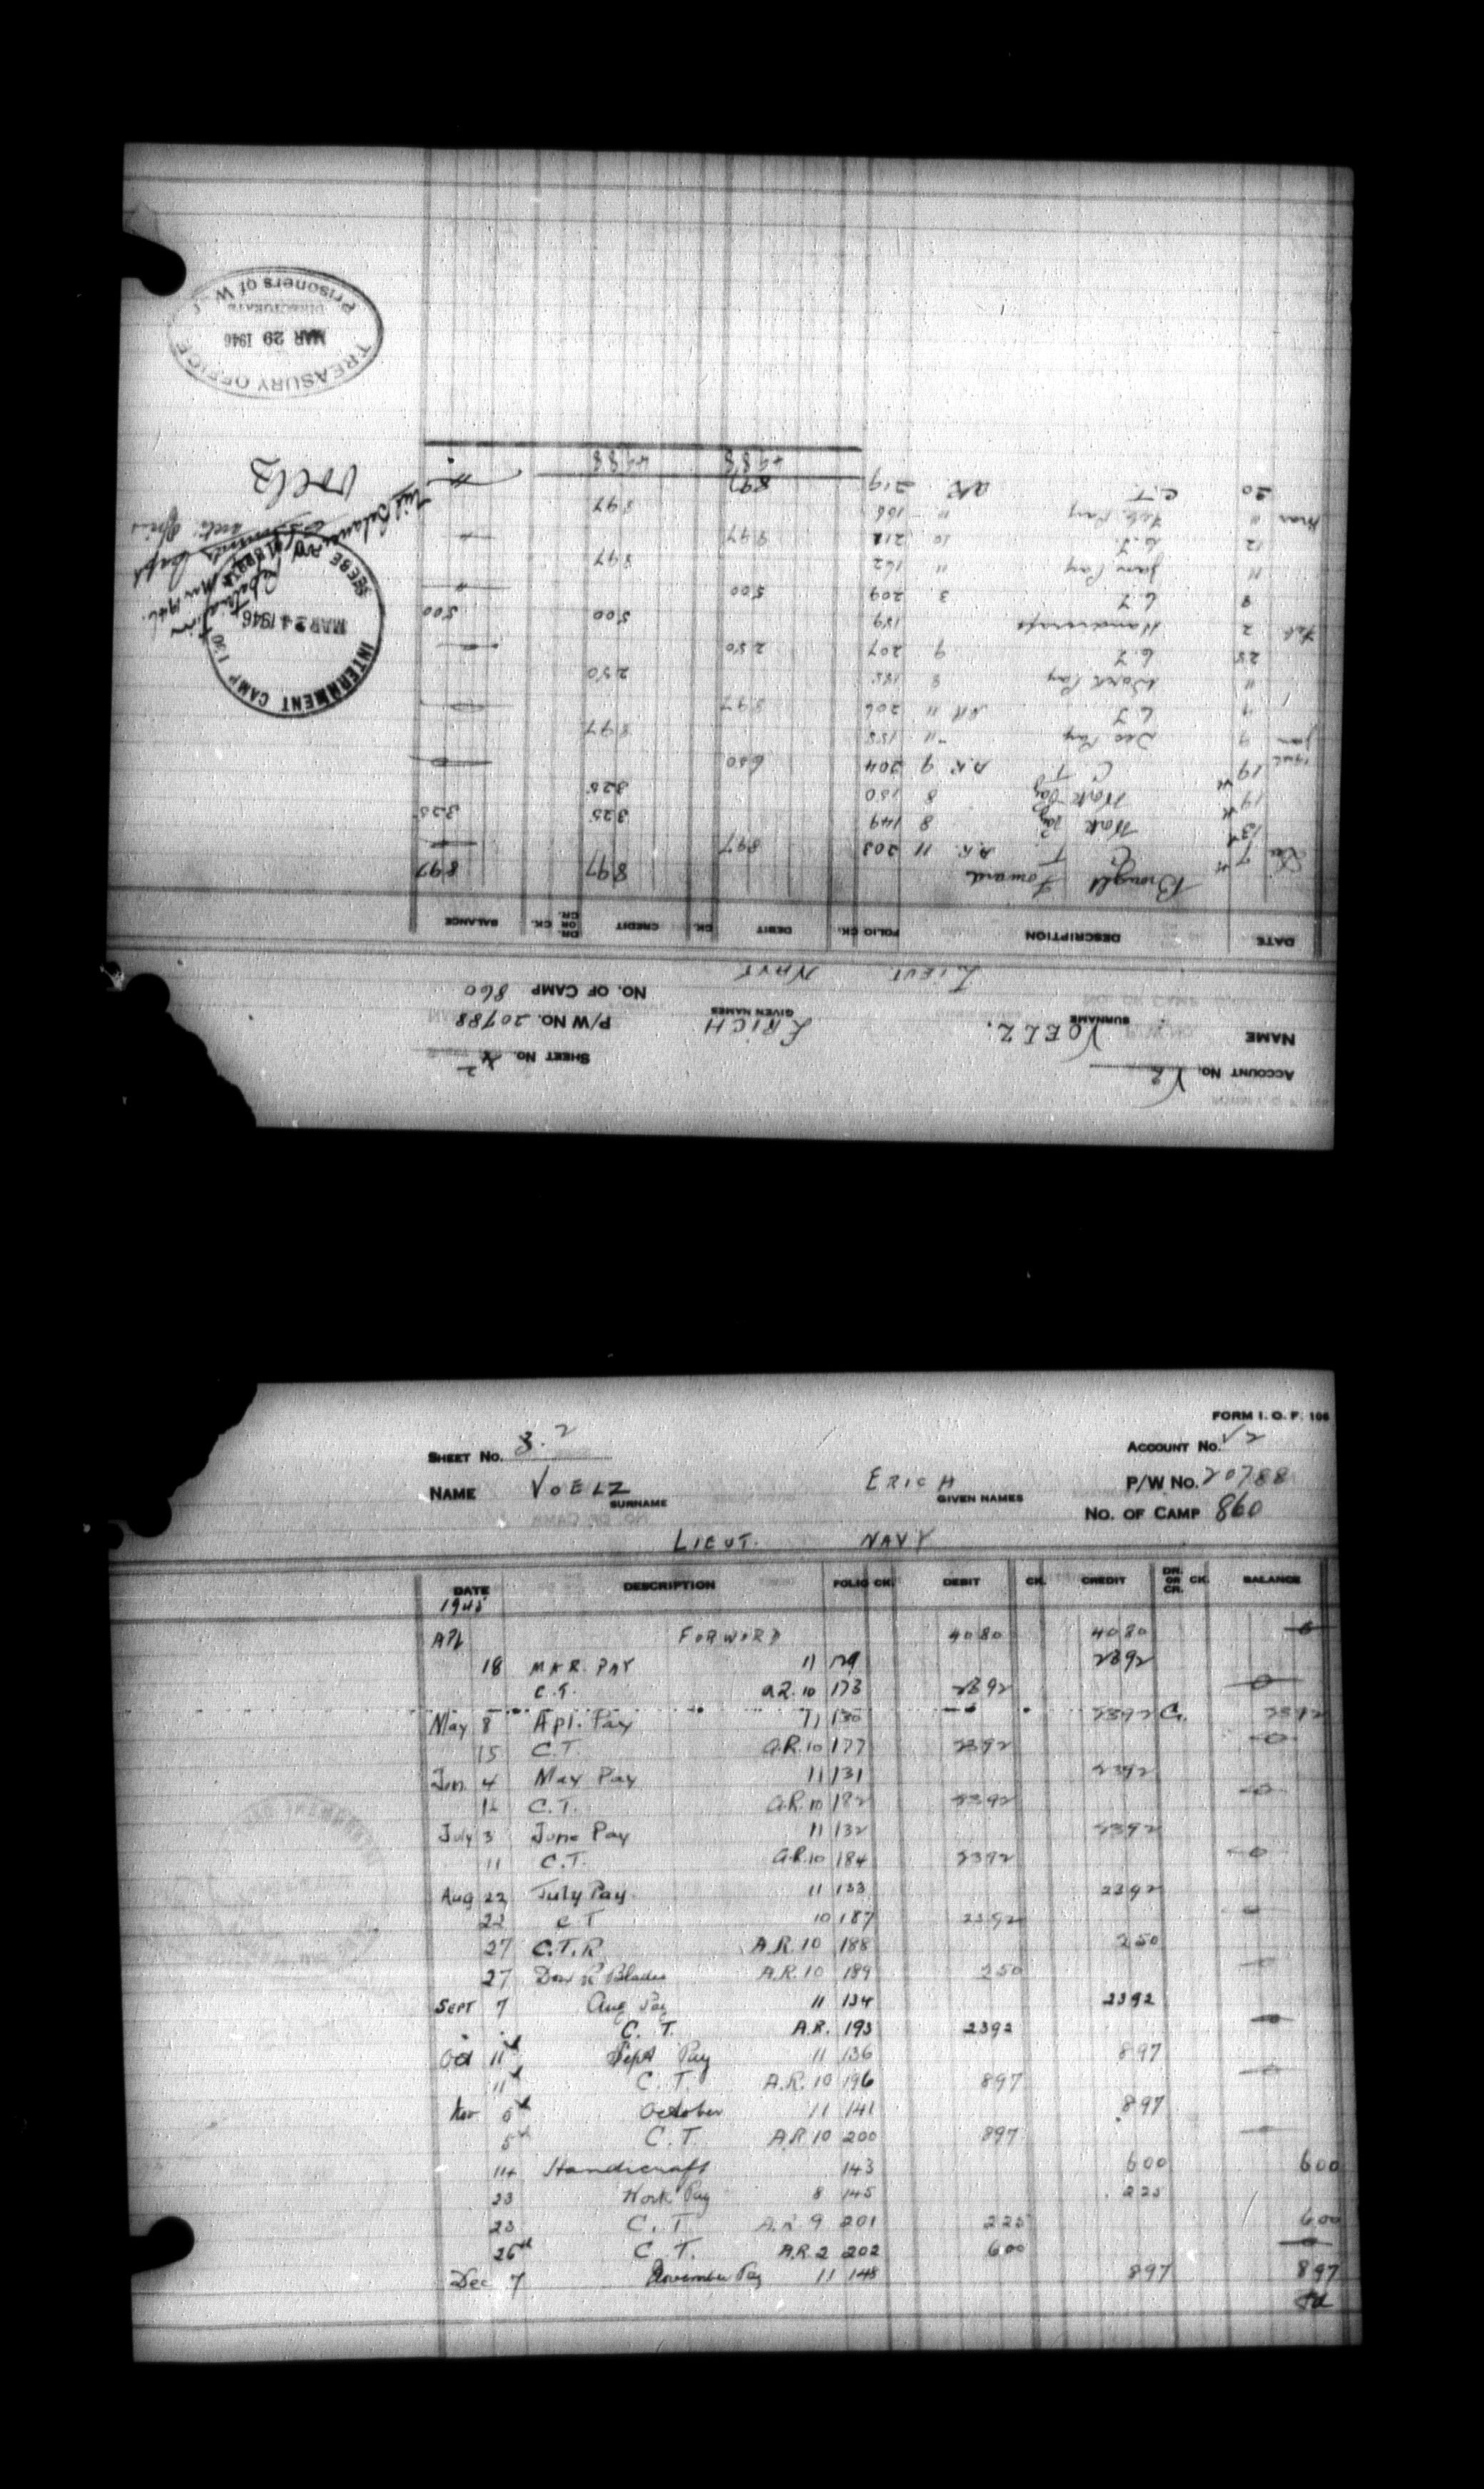 FORM I. O. F. 106
SHEET No. 3. 2
ACCOUNT No. V2
NAME VOELZ ERICH P/W No. 20788
SURNAME GIVEN NAMES
No. OF CAMP 860
LIEUT. NAVY
DATE DESCRIPTION FOLIO CK. DEBIT CK. CREDIT DR. OR CR. CK. BALANCE
1945
Apl FORWORD 4080 4080 0
18 MAR. PAY 11 129 2392
C.T. a.R. 10 173 2392 0
May 8 Apl. Pay 11 130 2392 Cr. 2392
15 C.T. a.R. 10 177 2392 0
Jun 4 May Pay 11 131 2392
C.T. a.R. 10 182 2392 0
July 3 June Pay 11 132 2392
11 C.T. a.R. 10 184 2392 0
Aug 22 July Pay 11 133 2392
22 CT 10 187 2392 0
27 C.T.R. A.R. 10 188 250
27 Blades A.R. 10 189 250
SEPT 7 Aug Pay 11 134 2392
C. T. A.R. 193 2392
Oct 11th Sept Pay 11 136 897
11th C. T. A.R. 10 196 897
Nov 5th October 11 141 897
5th C. T. A.R 10 200 897
14 Handicraft 143 600 600
23 Work Pay 8 145 225
23 C. T. A.R. 9 201 225 600
26th C. T. A.R. 2 202 600
Dec 7 November Pay 11 148 897 897
ACCOUNT No. V2 SHEET No. 2
NAME VOELZ. ERICH P/W No. 20788
SURNAME GIVEN NAMES
NO. OF CAMP 860
LIEUT NAVY
DATE DESCRIPTION FOLIO CK. DEBIT CK. CREDIT DR. OR CR. CK. BALANCE
Brought Forward 897 897
Dec 7th C. T A.R. 11 203 897
13th Work Pay 8 149 325 325
19th Work Pay 8 150 325
19 C. T A.R. 9 204 650
Jan 9 Dec Pay 11 155 897
9 C.T AR 11 206 897
11 Work Pay 8 158 250
25 C.T 9 207 250
Feb 2 Handicraft 159 500 500
8 C.T 3 209 500
11 Jan Pay 11 162 897
12 C.T. 10 212 897
Mar 11 Feb. Pay 11 166 897
20 C.T. AR 219 897
4988 4988
INTERNMENT CAMP 130
MAR 24 1946
SEEBE
Voelz
TREASURY OFFICE
MAR 29 1946
DIRECTORATE
Prisoners of W